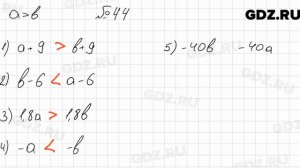 GDZ.RU
a > b №44
1) a + 9 > b + 9 5) -40b -40a
2) b - 6 < a - 6
3) 1,8a > 1,8b
4) -a < -b